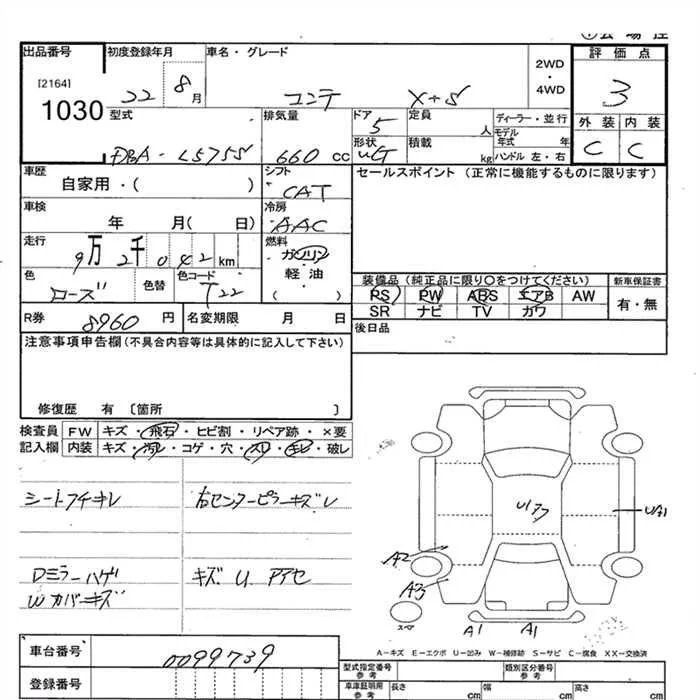 出品番号 初度登録年月 車名・グレード 評価点
[2164] 1030 22 8月 コンテ X+S 2WD・4WD 3
型式 排気量 ドア 定員 ディーラー・並行 外装 内装
DBA-L575S 660 cc 5 人 モデル年式 年 C C
形状 積載 kg ハンドル 左・右
車歴 シフト セールスポイント (正常に機能するものに限ります)
自家用・( ) CAT
車検 冷房
年 月( 日) AAC
走行 燃料
9万 2千 042 km ガソリン
軽油
( )
色 色替 色コード 装備品 (純正品に限り○をつけてください) 新車保証書
ローズ T22 PS PW ABS エアB AW 有・無
SR ナビ TV カワ
R券 8960 円 名変期限 月 日 後日品
注意事項申告欄 (不具合内容等は具体的に記入して下さい)
修復歴 有 〔箇所 〕
検査員 FW キズ・飛石・ヒビ割・リペア跡・×要
記入欄 内装 キズ・汚レ・コゲ・穴・スレ・キレ・破レ
シートフチキレ 右センターピラーキズ
Dミラーハゲ キズ U
Wカバーキズ
U1 UA1
A2
A3
スペア A1 A1
A-キズ E-エクボ U-凹み W-補修跡 S-サビ C-腐食 XX-交換済
車台番号 0099739 型式指定番号 参考 類別区分番号 参考
登録番号 車庫証明用 参考 長さ cm 幅 cm 高さ cm